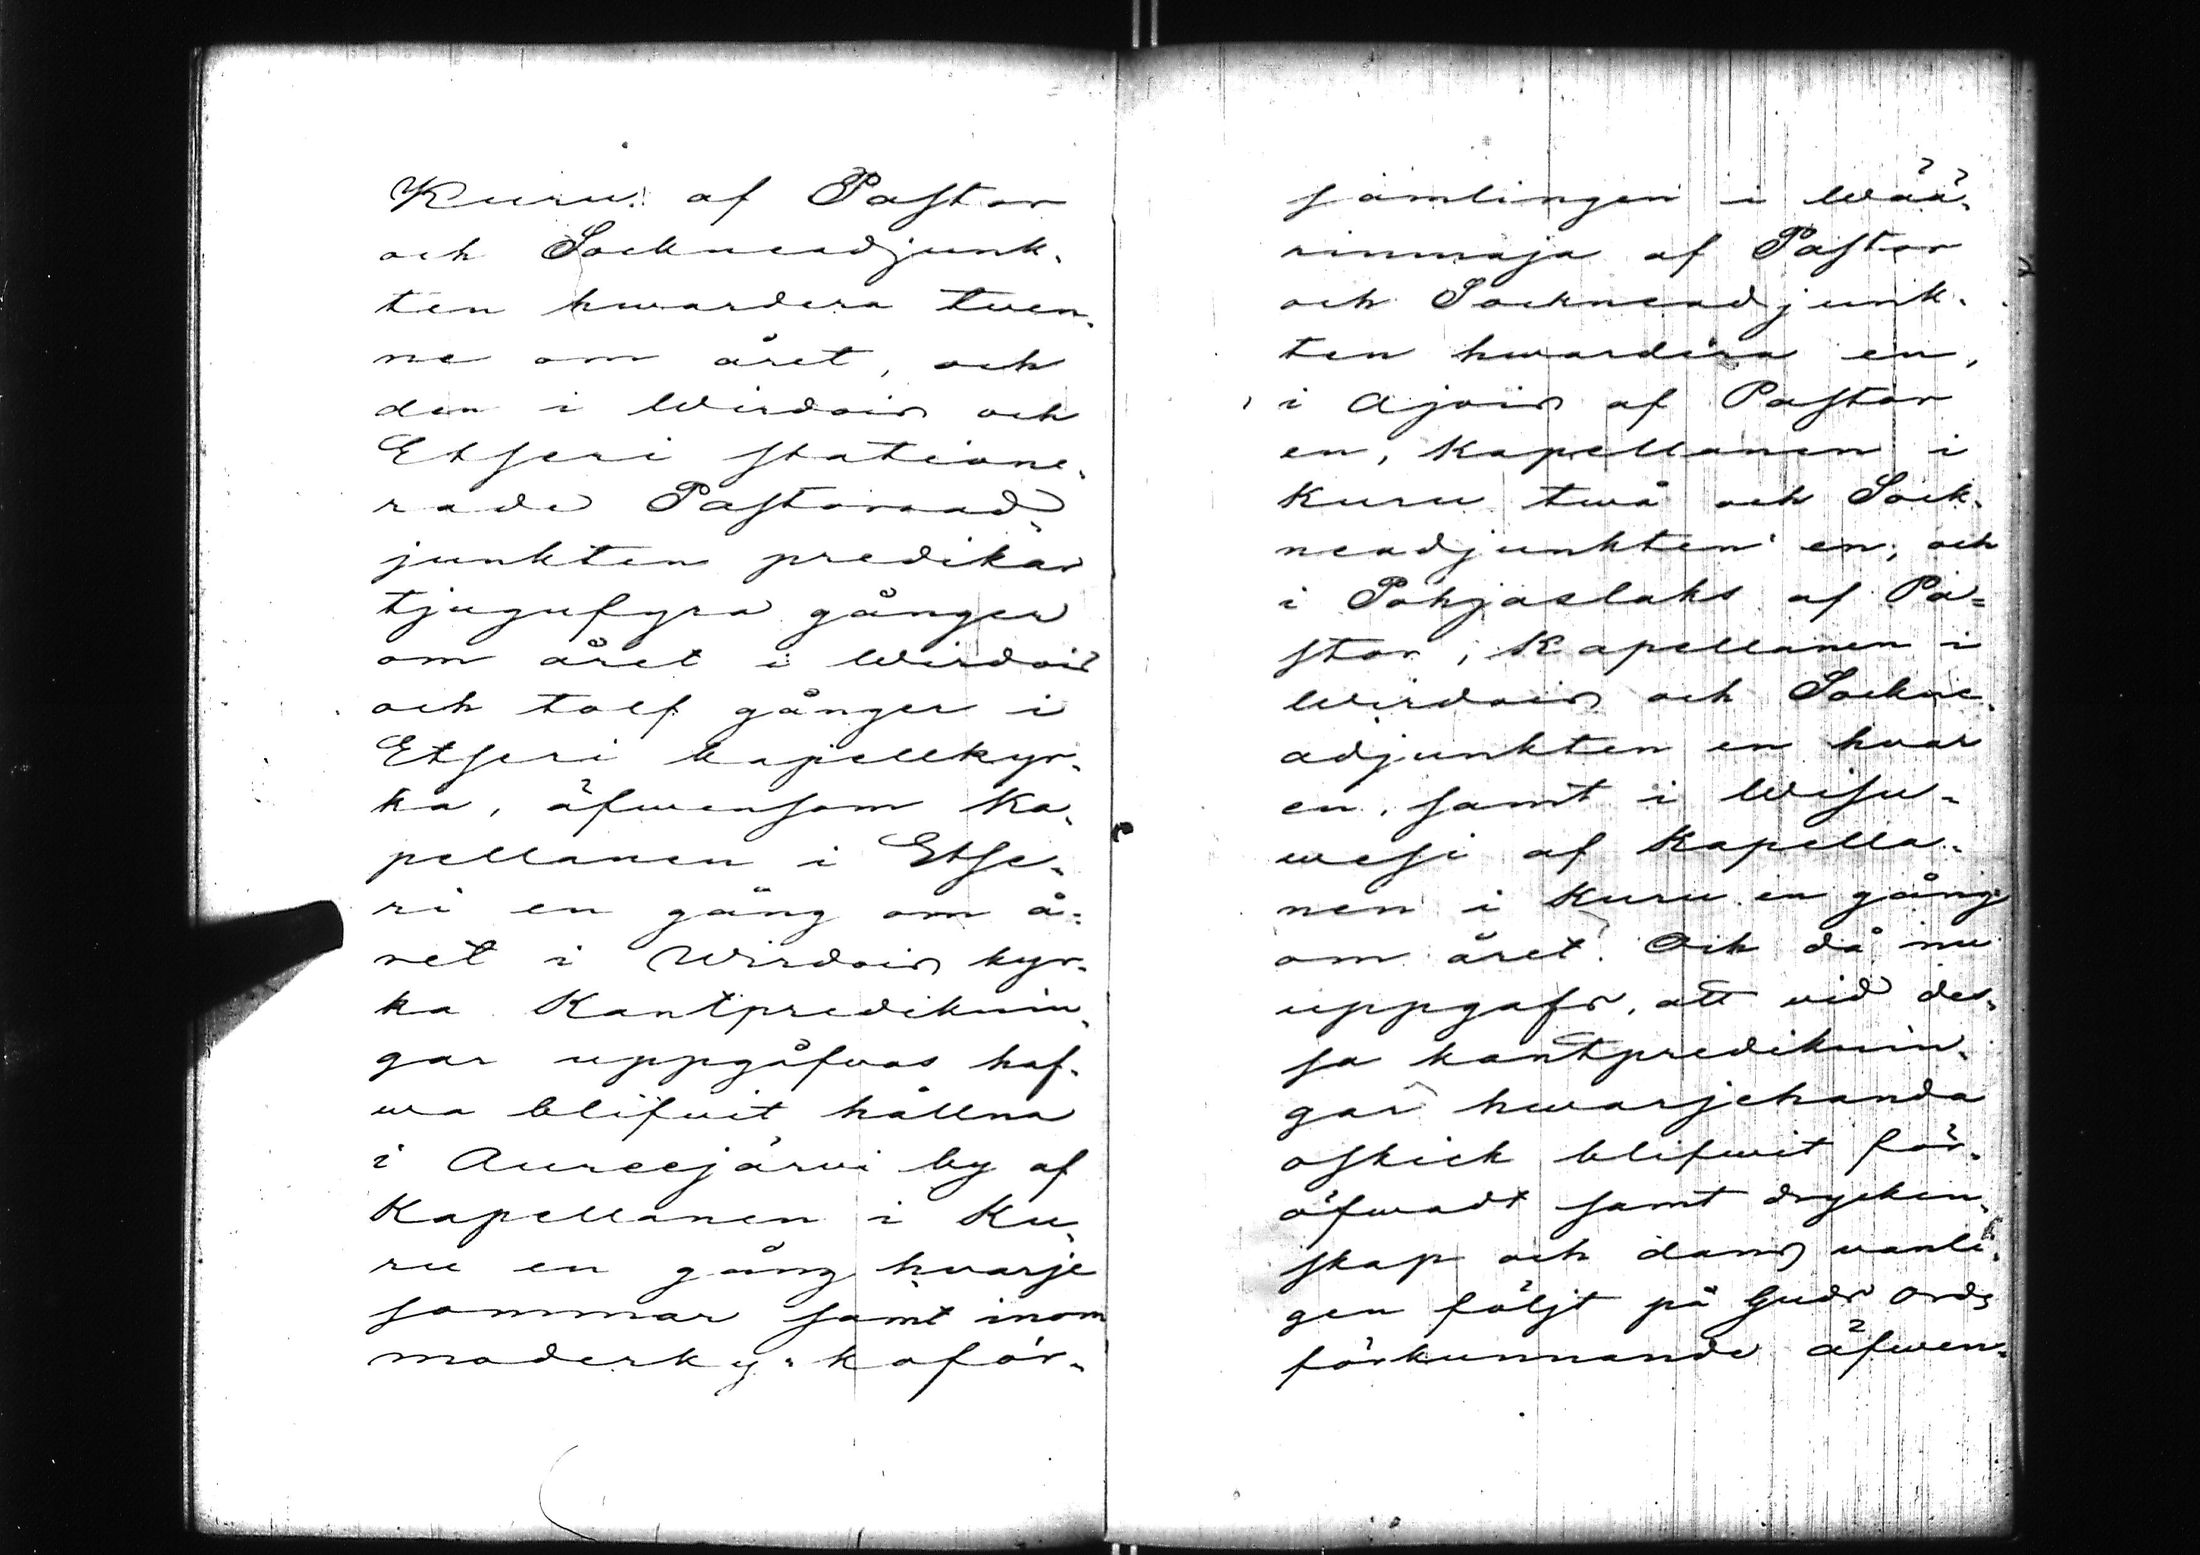 Kuru af Pastor
och Sockneadjunk-
ten hwardera twen-
ne om året, och
den i Wirdois och
Etseri statione-
rade Pastorsad-
junkten predikar
tjugufyra gånger
om året i Wirdois
och tolf gånger i
Etseri kapellkyr-
ka, äfwensom Ka-
pellanen i Etse-
ri en gång om å-
ret i Wirdois kyr-
ka. Kantprediknin-
gar uppgåfvos haf-
wa blifvit hållna
i Aureejärwi by af
Kapellanen i Ku-
ru en gång hvarje
sommar samt inom
moderkyrkoför-
samlingen i Wää-
rinmaja af Pastor
och Sockneadjunk-
ten hwardera en,
i Ajois af Pastor
en, Kapellanen i
Kuru twå och Sock-
neadjunkten en, och
i Pohjaslaks af Pa-
stor, Kapellanen i
Wirdois och Sockne-
adjunkten en hvar
en, samt i Wisu-
wesi af Kapella-
nen i Kuru en gång
om året. Och då nu
uppgafs, att vid des-
sa kantprediknin-
gar hwarjehanda
oskick blifwit för-
öfwadt samt drycken-
skap och dans vanli-
gen följt på Guds ords
förkunnande äfwen-